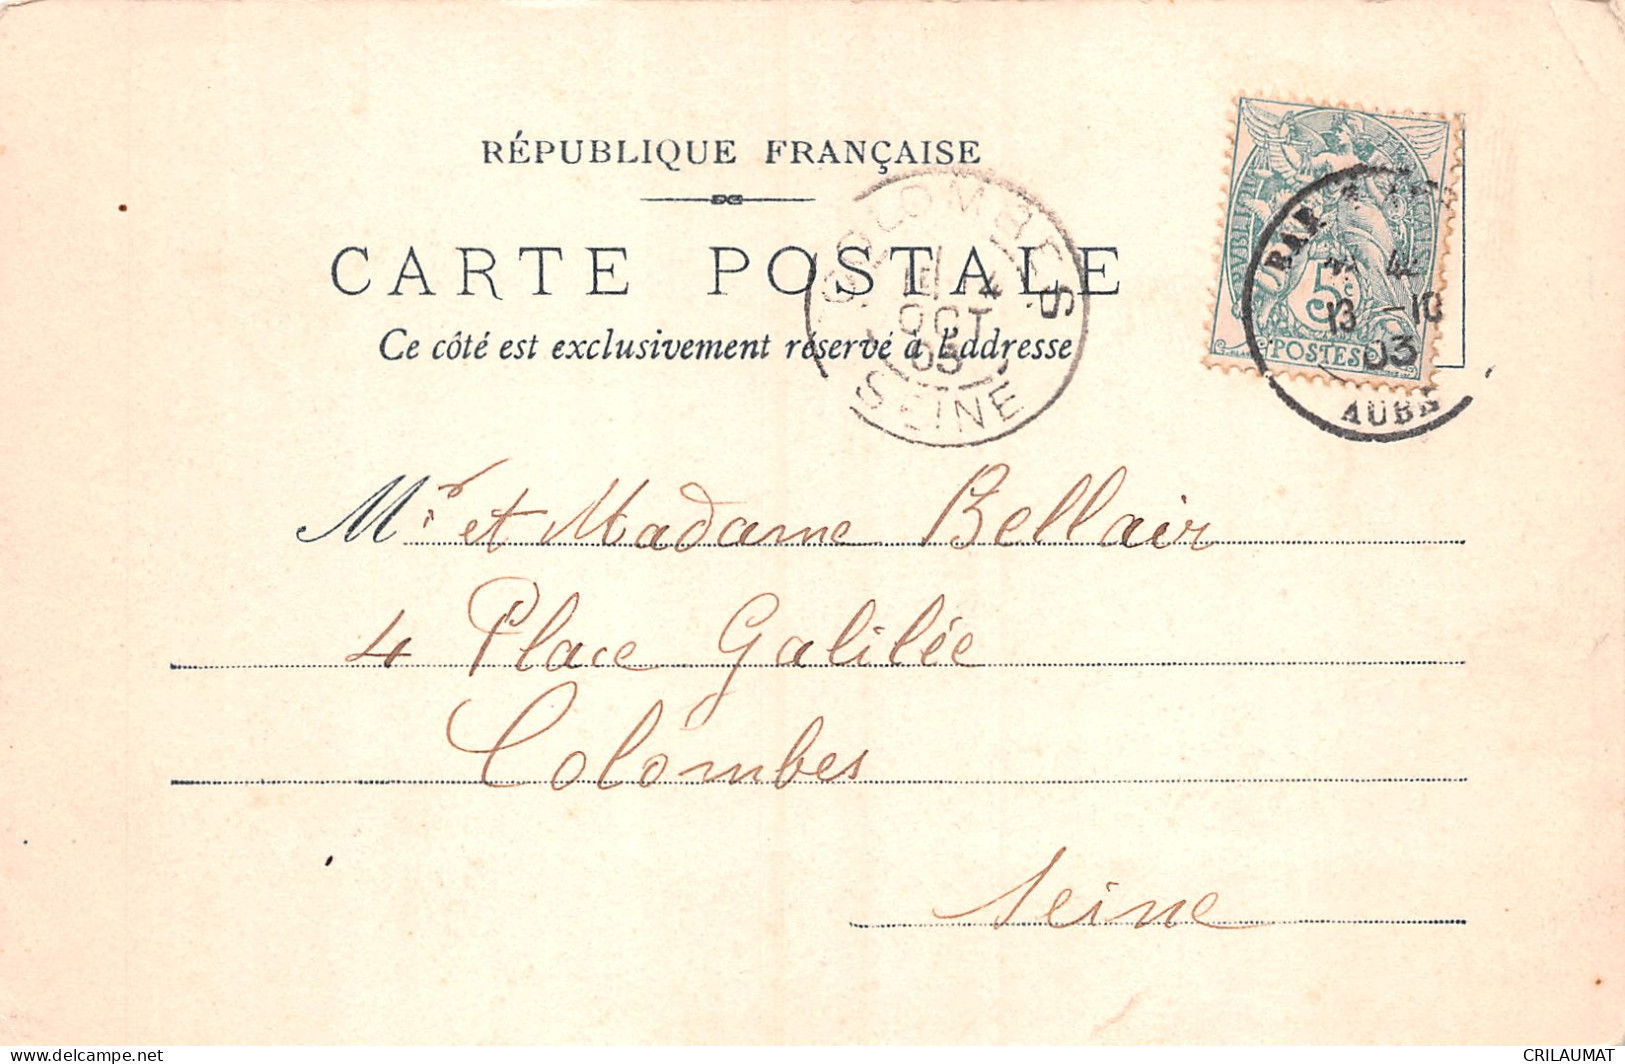 RÉPUBLIQUE FRANÇAISE
CARTE POSTALE
Ce côté est exclusivement réservé à l'adresse
COLOMBES
OCT
03
SEINE
5c
POSTES
BAR
13 -10
03
AUBE
Mr. et Madame Bellair
4 Place Galilée
Colombes
Seine
www.delcampe.net
CRILAUMAT